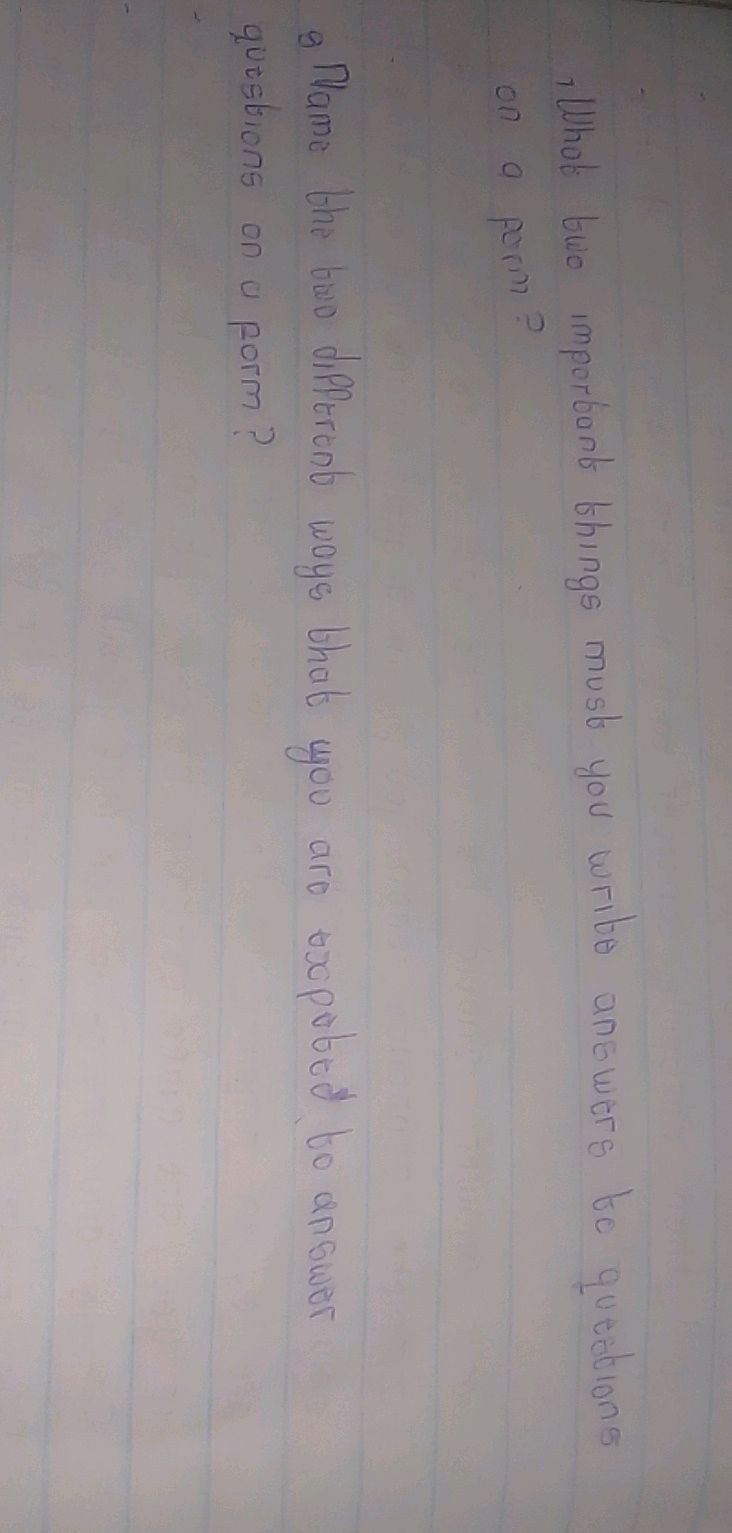 1, What two important things must you write answers to questions
on a form?
2 Name the two different ways that you are expeted to answer
questions on a form?